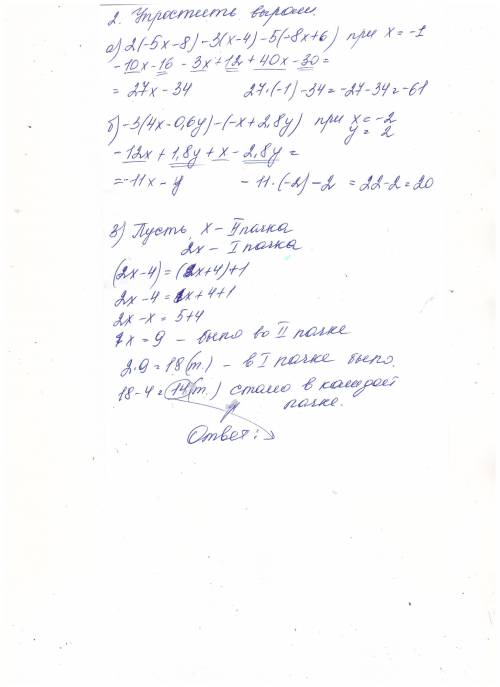 2. Упростить выраж.
а) 2(-5x-8)-3(x-4)-5(-8x+6) при x=-1
-10x-16-3x+12+40x-30=
= 27x-34 27·(-1)-34=-27-34=-61
б) -3(4x-0,6y)-(-x+2,8y) при x=-2
y=2
-12x+1,8y+x-2,8y=
=-11x-y -11·(-2)-2 =22-2=20
3) Пусть x - II пачка
2x - I пачка
(2x-4)=(x+4)+1
2x-4=x+4+1
2x-x=5+4
x=9 - было во II пачке
2·9=18(т.) - в I пачке было.
18-4=14(т.) стало в каждой
пачке.
Ответ: